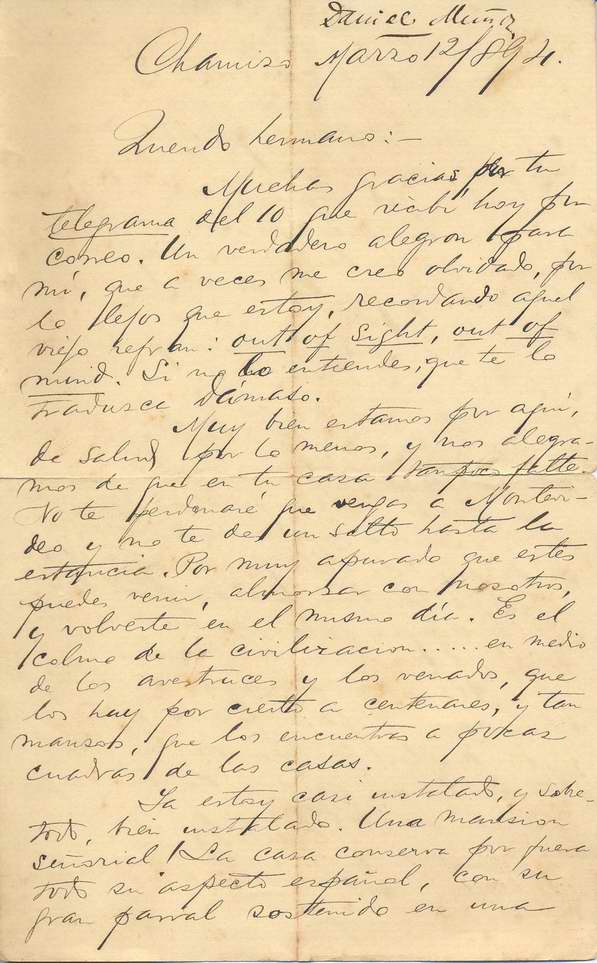 Daniel Muñoz
Chamizo Marzo 12/894.
Querido hermano:—
Muchas gracias por tu
telegrama del 10 que recibí hoy por
correo. Un verdadero alegron para
mí, que a veces me creo olvidado, por
lo lejos que estoy, recordando aquel
viejo refran: out of sight, out of
mind. Si no lo entiendes, que te lo
traduzca Dámaso.
Muy bien estamos por aquí,
de salud por lo menos, y nos alegra-
mos de que en tu casa tampoco falte.
No te perdonaré que vengas a Montevi-
deo y no te des un salto hasta la
estancia. Por muy apurado que estes
puedes venir, almorzar con nosotros,
y volverte en el mismo día. Es el
colmo de la civilizacion..... en medio
de los avestruces y los venados, que
los hay por cierto a centenares, y tan
mansos, que los encuentras a pocas
cuadras de las casas.
Ya estoy casi instalado, y sobre-
todo, bien instalado. Una mansion
señorial! La casa conserva por fuera
todo su aspecto español, con su
gran parral sostenido en una